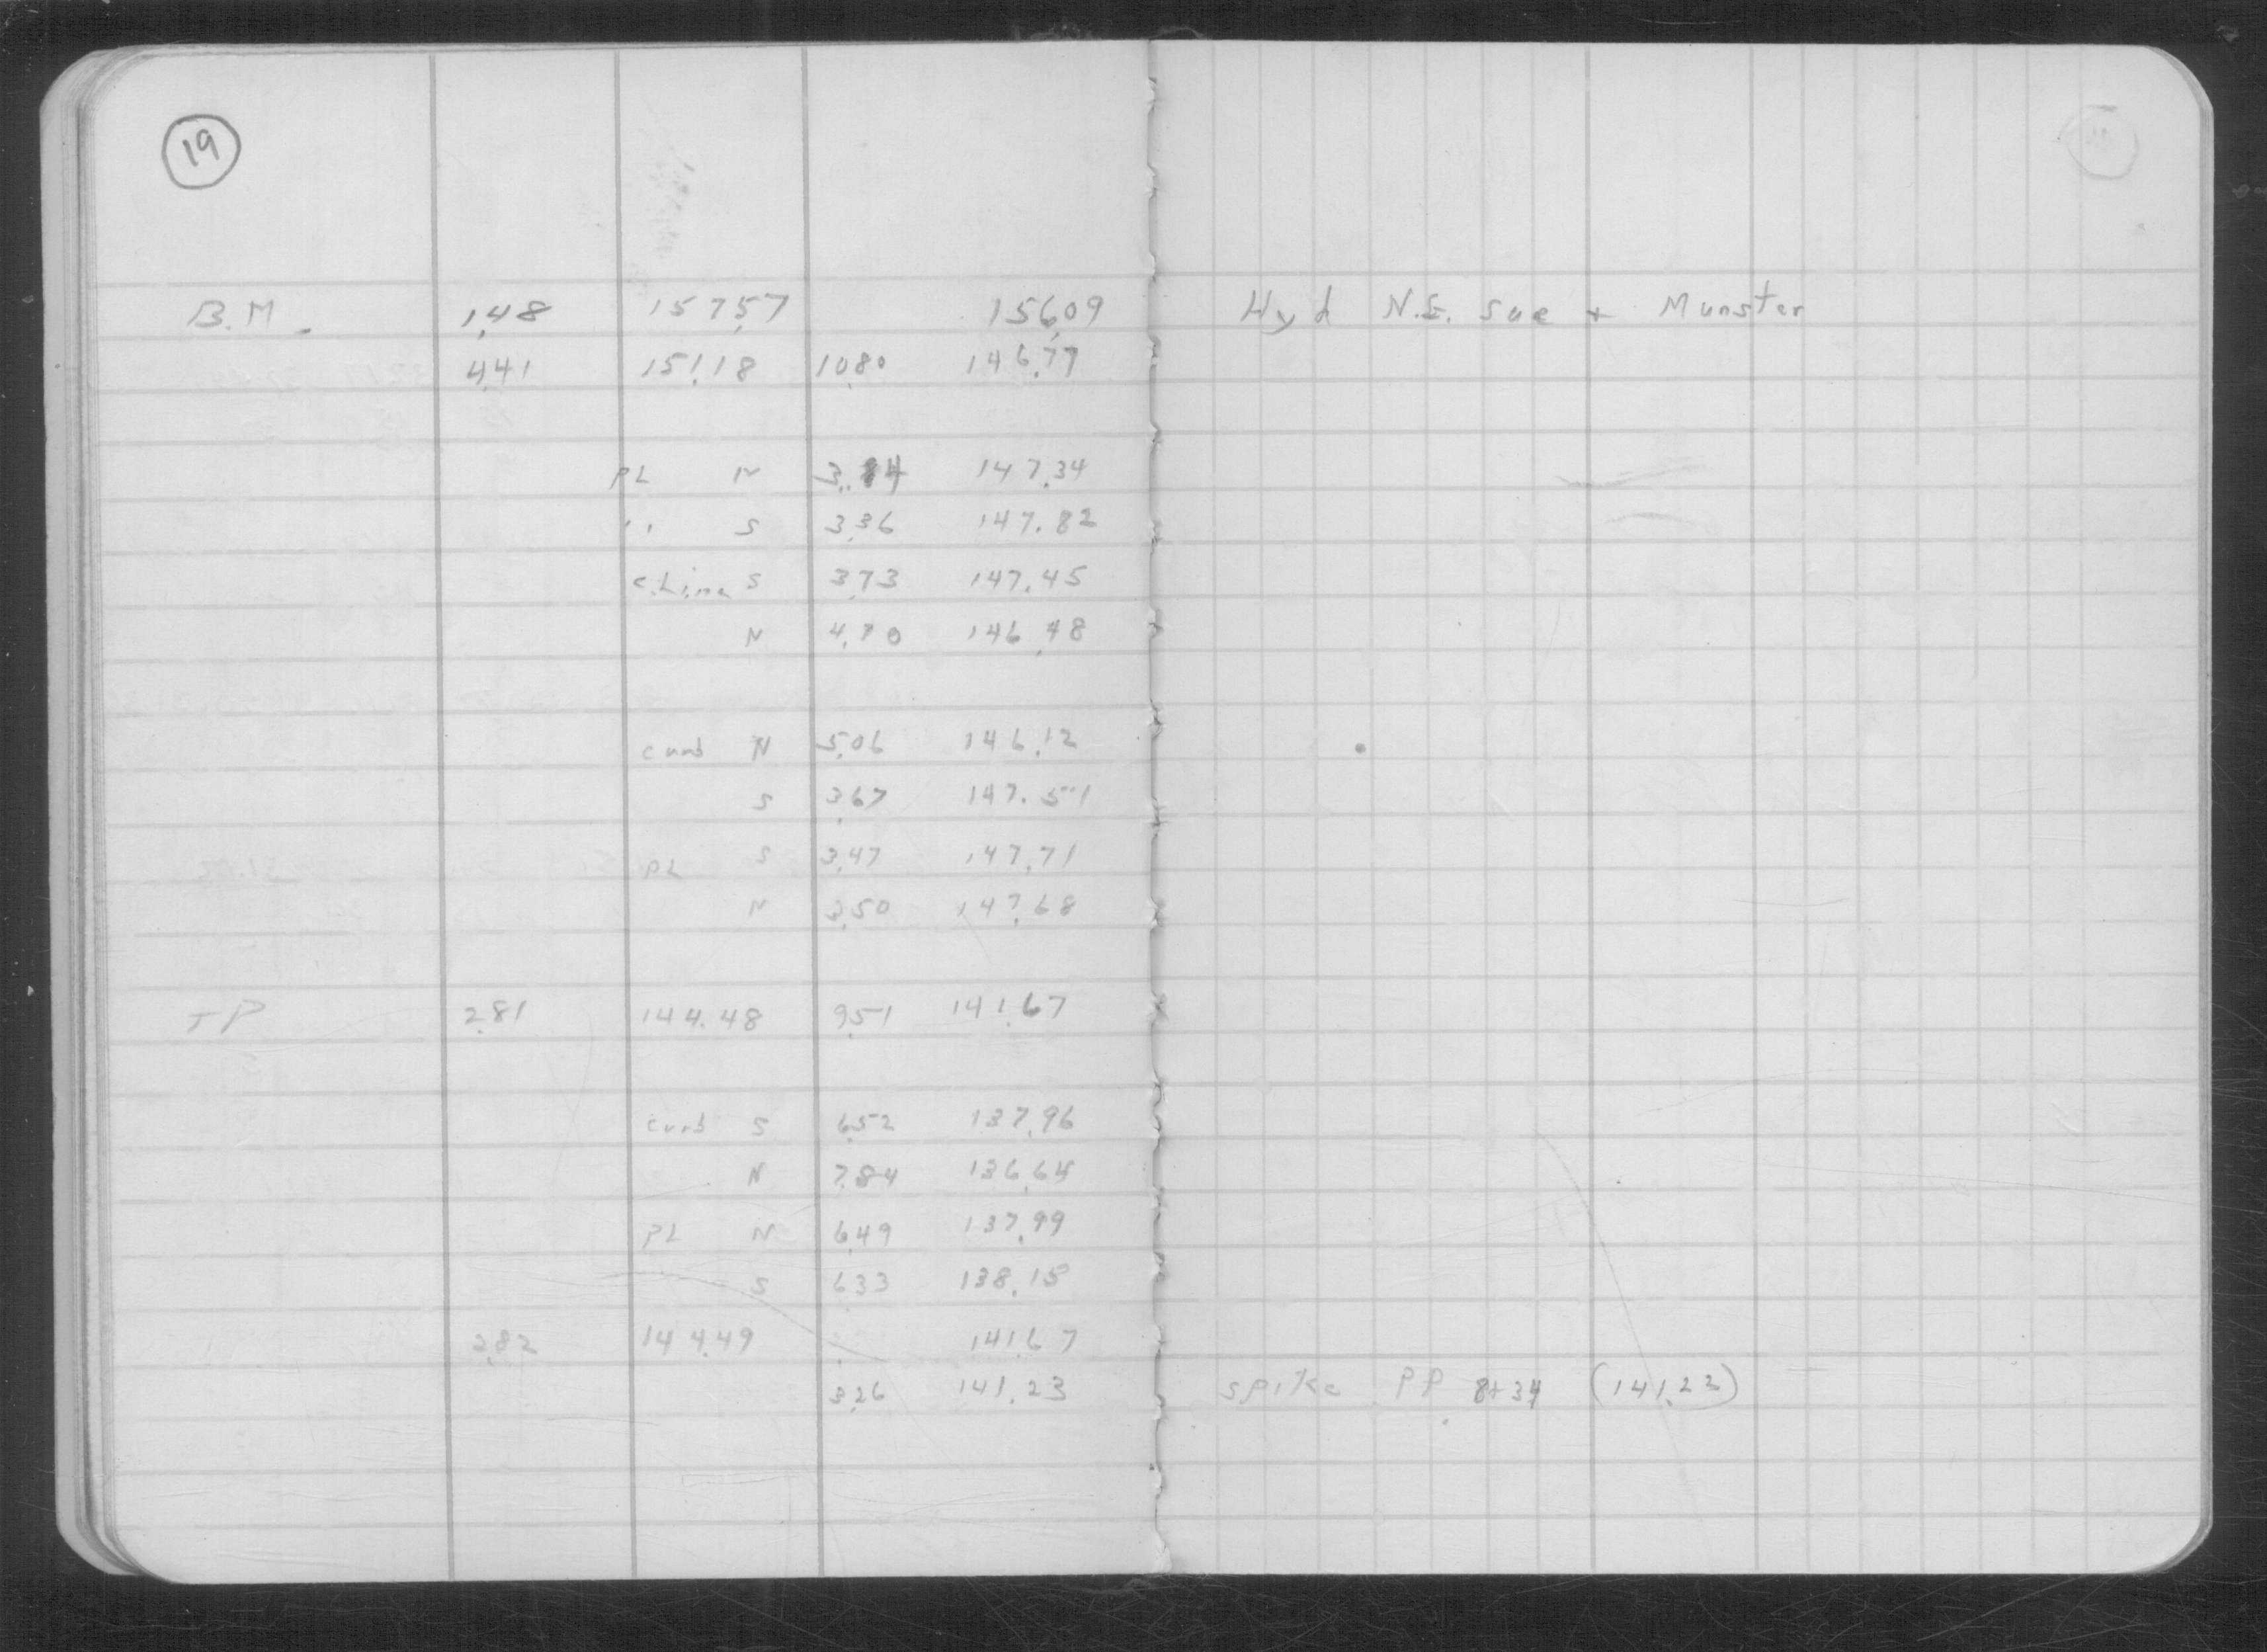 19
B.M. 1.48 157.57 156.09 Hyd N.E. Sue + Munster
4.41 151.18 10.80 146.77
PL N 3.84 147.34
" S 3.36 147.82
C.Line S 3.73 147.45
N 4.70 146.48
curb N 5.06 146.12
S 3.67 147.51
PL S 3.47 147.71
N 3.50 147.68
TP 2.81 144.48 9.51 141.67
curb S 6.52 137.96
N 7.84 136.64
PL N 6.49 137.99
S 6.33 138.15
2.82 144.49 141.67
3.26 141.23 spike PP 8+34 (141.23)